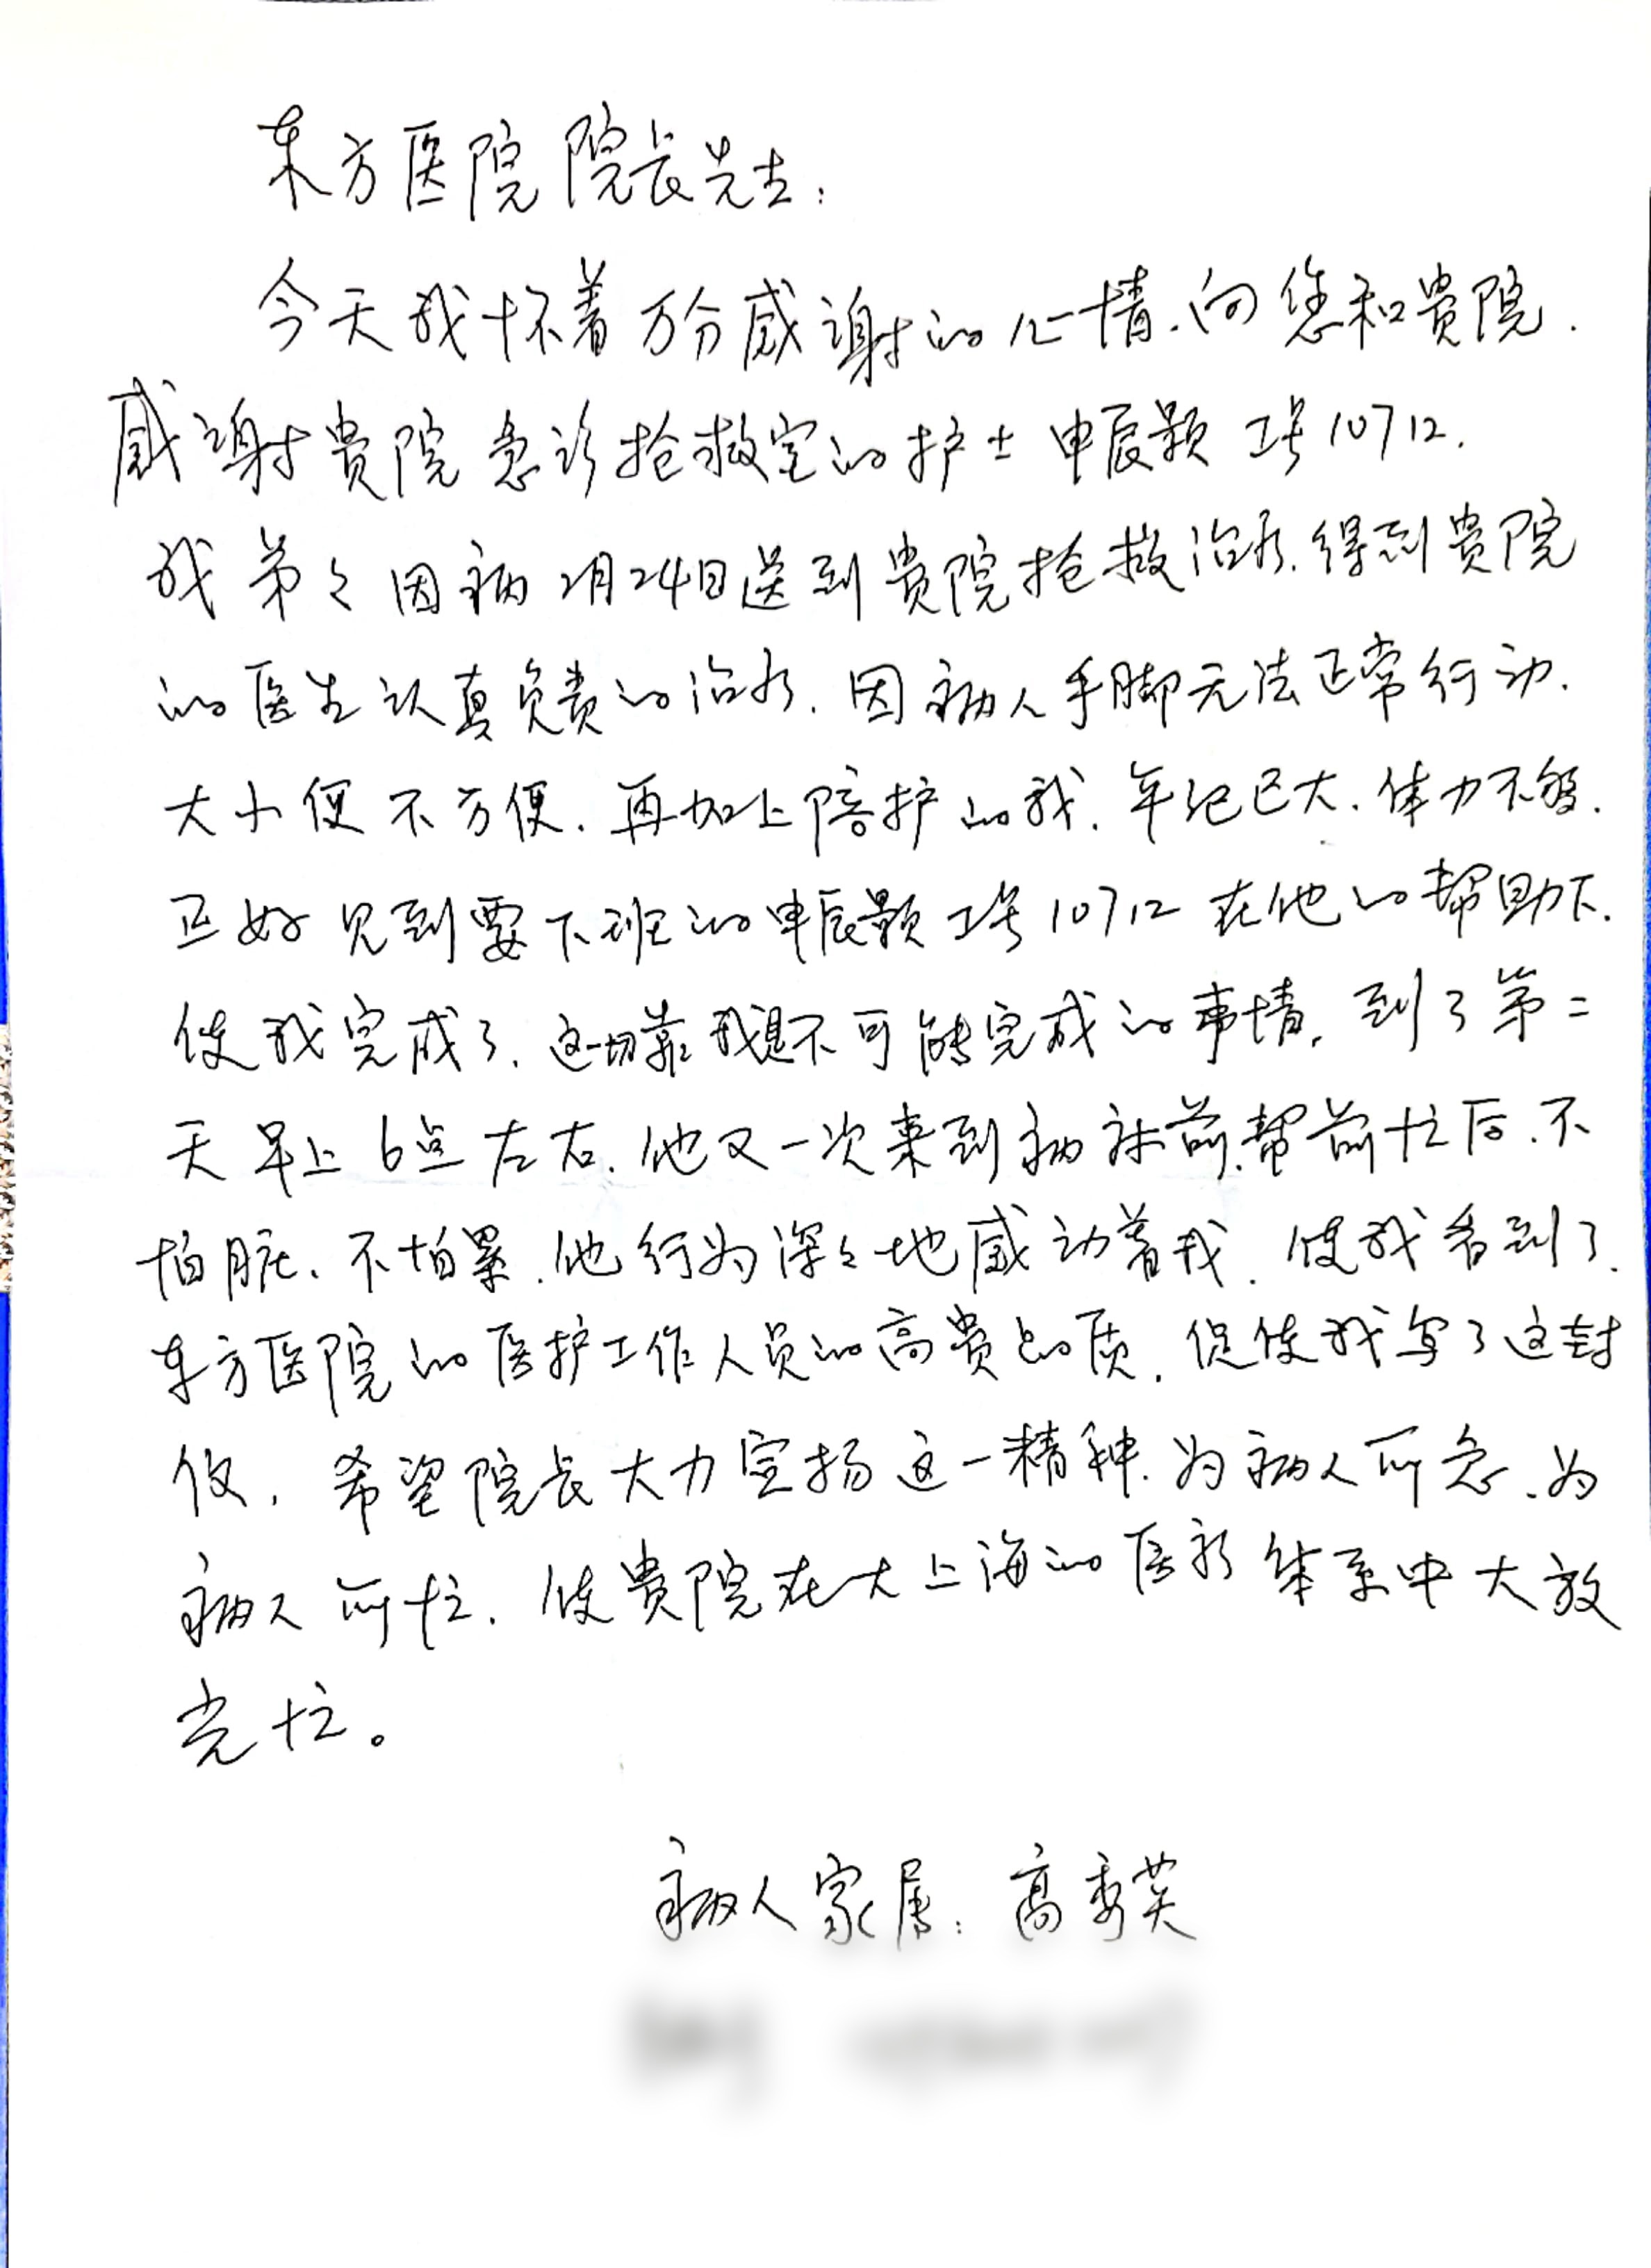 东方医院院长先生:
今天我怀着万分感谢的心情.向您和贵院.
感谢贵院急诊抢救室的护士申辰颖工号10712.
我弟々因病2月24日送到贵院抢救治疗.得到贵院
的医生认真负责的治疗.因病人手脚无法正常行动.
大小便不方便.再加上陪护的我.年纪已大.体力不够.
正好见到要下班的申辰颖工号10712在他的帮助下.
使我完成了.这一切靠我是不可能完成的事情.到了第二
天早上6点左右.他又一次来到病床前.帮前忙后.不
怕脏、不怕累.他行为深々地感动着我.使我看到了.
东方医院的医护工作人员的高贵品质.促使我写了这封
信.希望院长大力宣扬这一精神.为病人所急.为
病人所忙.使贵院在大上海的医疗体系中大放
光忙。
病人家属:高秀英